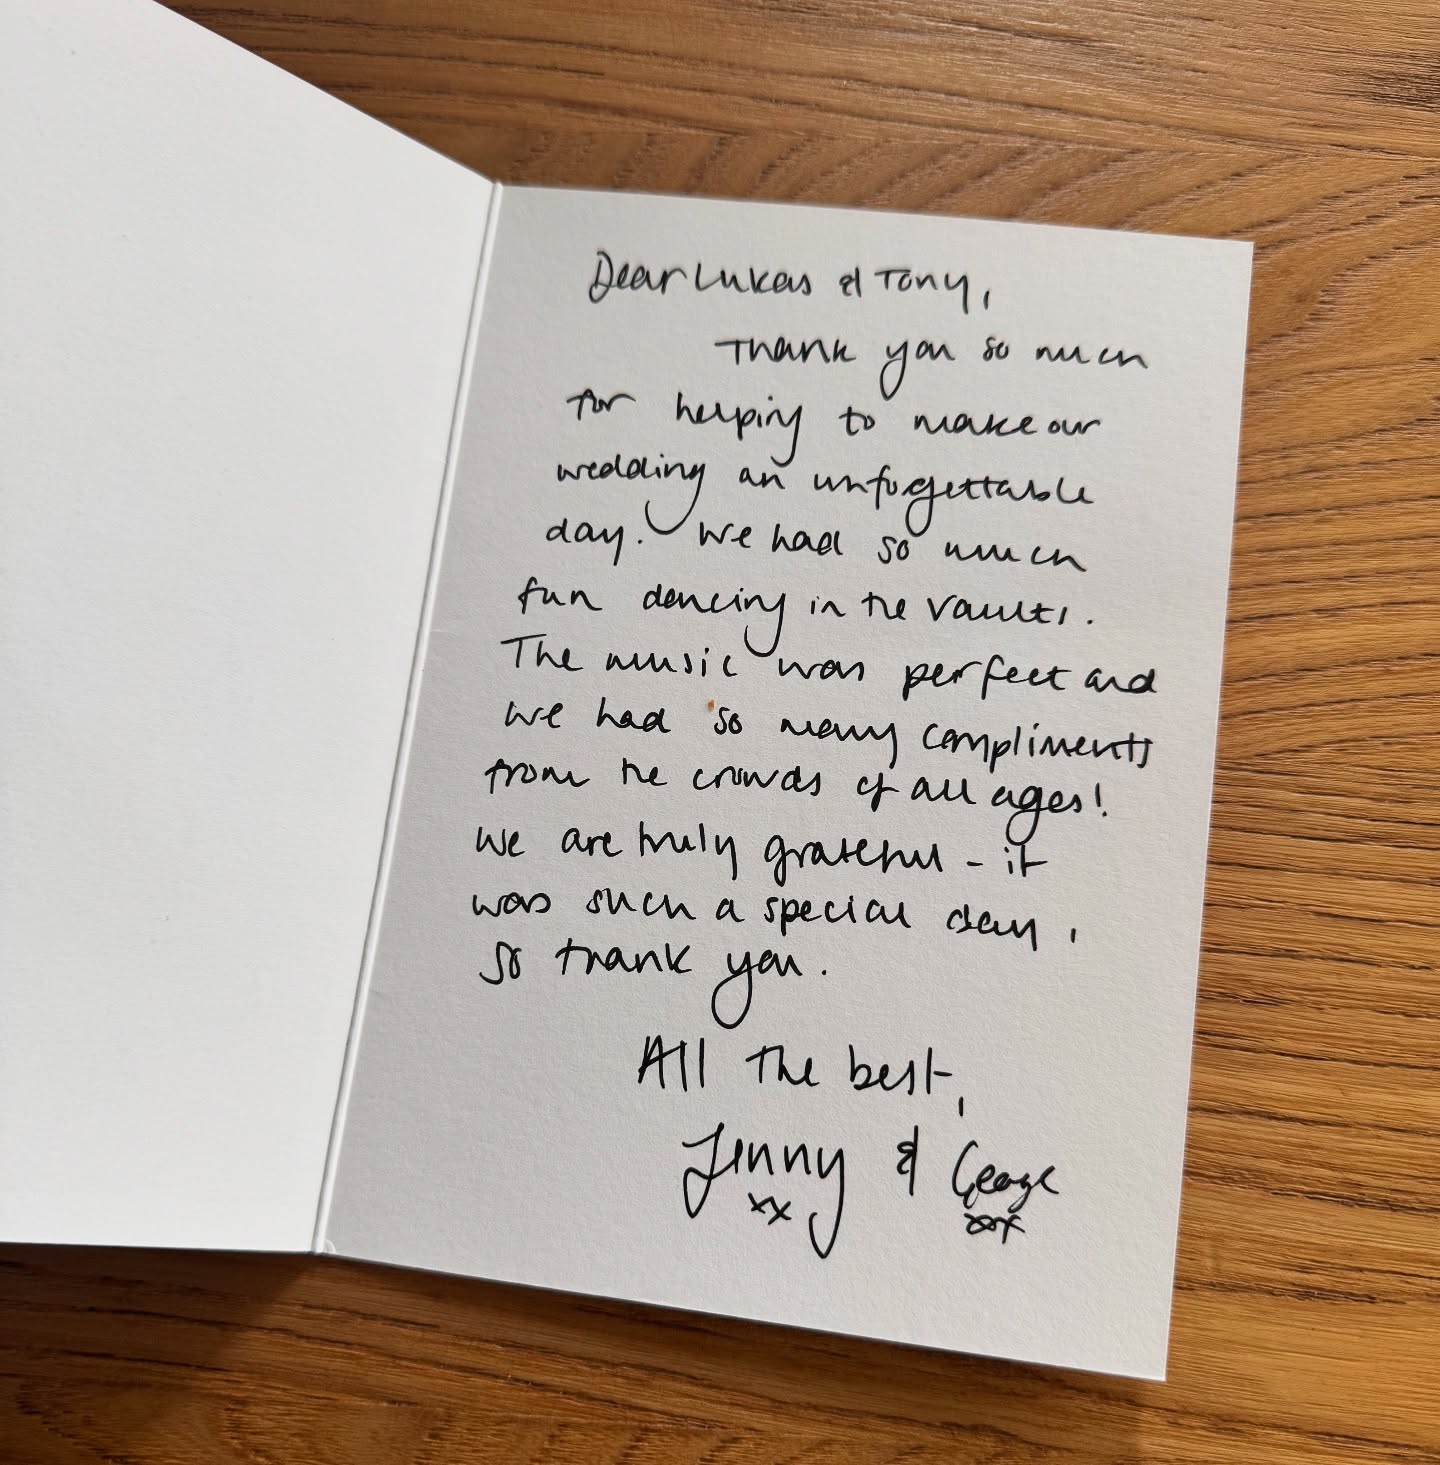 Dear Lukas & Tony,
Thank you so much
for helping to make our
wedding an unfogettable
day. We had so much
fun dancing in the vaults.
The music was perfect and
we had so many compliments
from the crowds of all ages!
We are truly grateful - it
was such a special day,
so thank you.
All the best,
Jenny & George
xx xxx